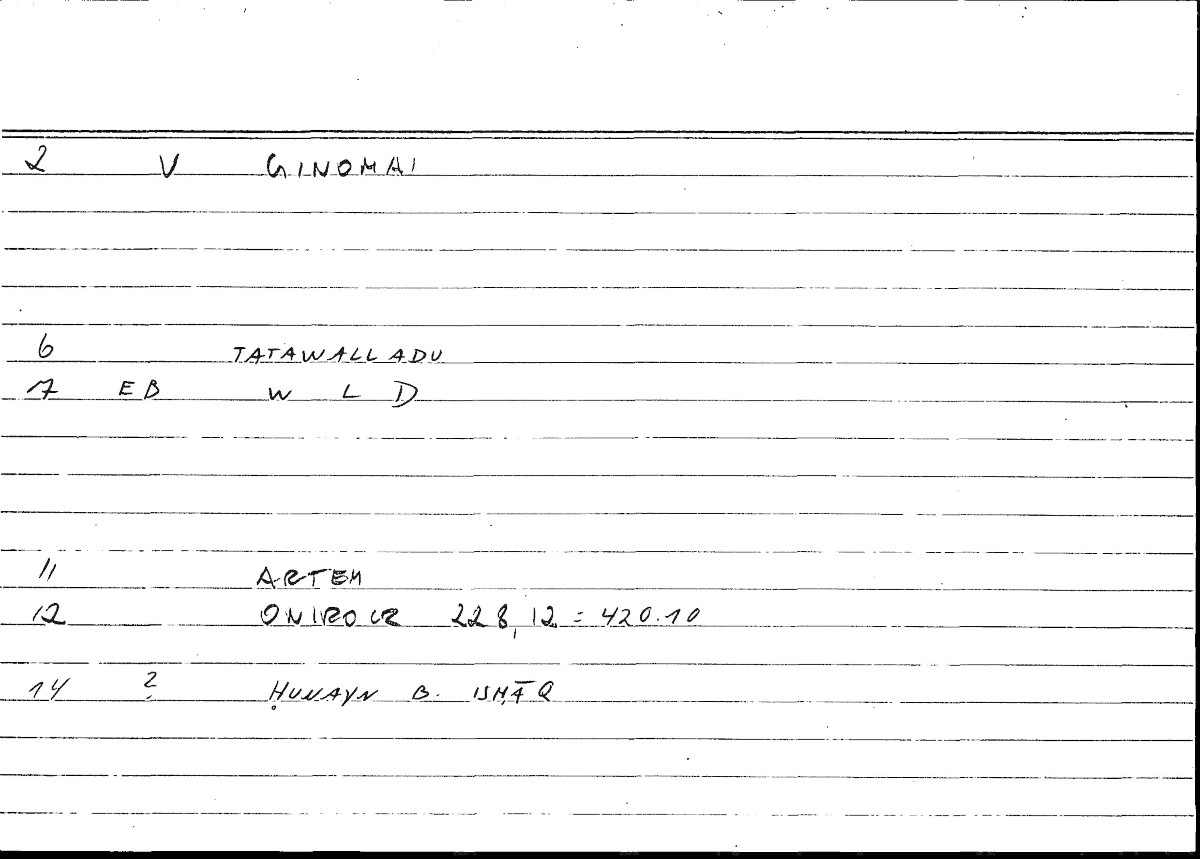 2 V GINOMAI
6 TATAWALLADU
7 EB W L D
11 ARTEM
12 ONIROCR 228,12 = 420.10
14 2 ḤUNAYN B. ISḤĀQ